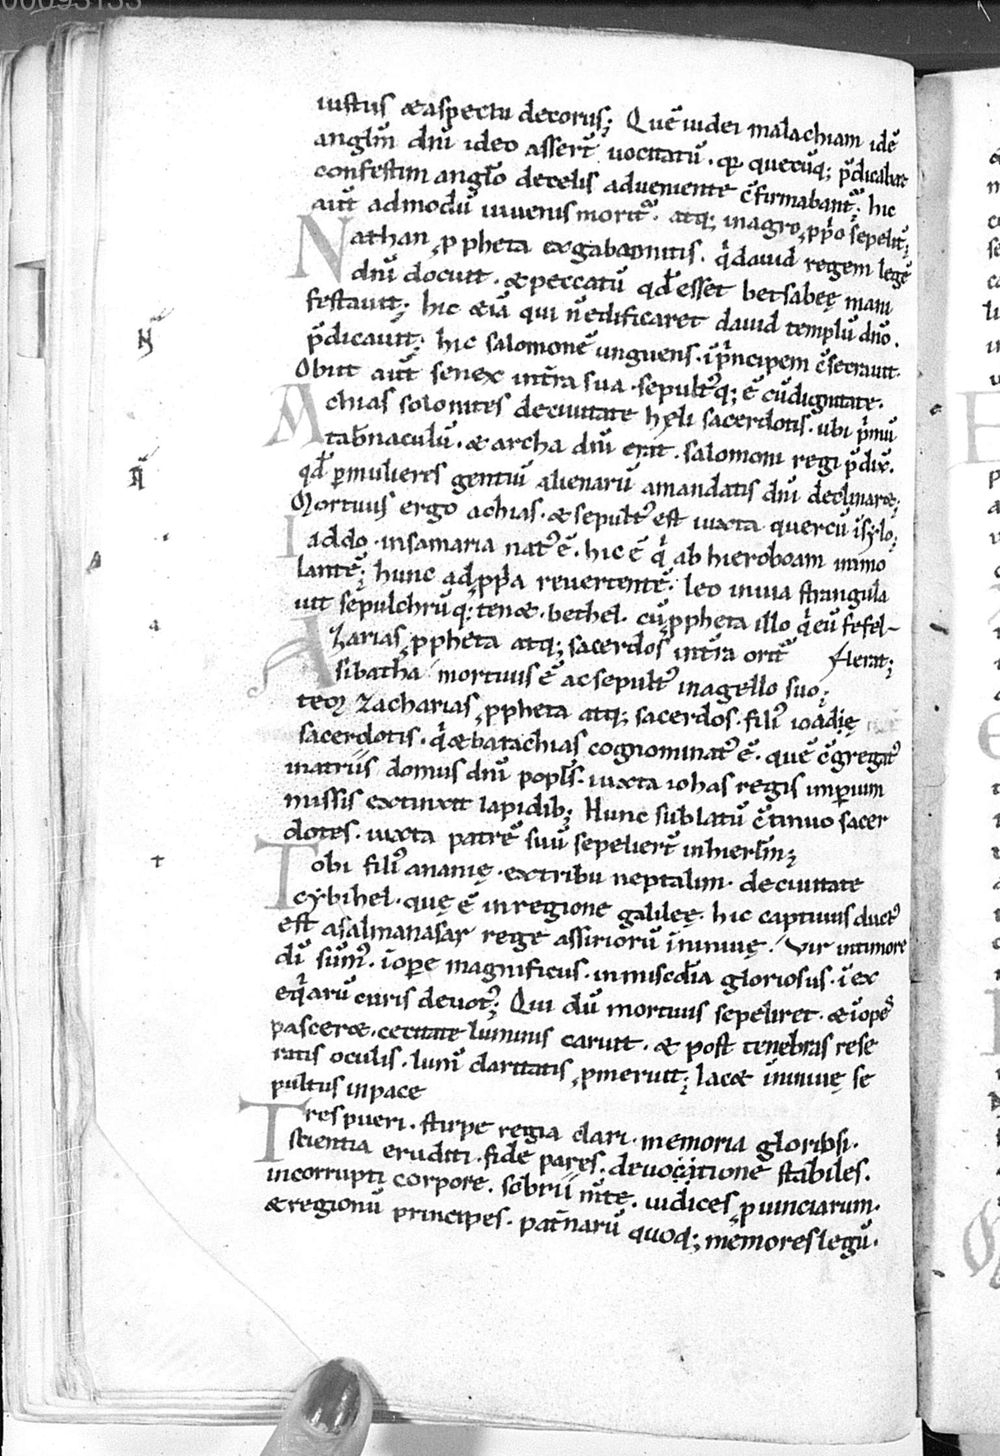 00093133
iustus & aspectu decorus; Quē iudei malachiam idē
anglm̄ dnī ideo asserūt uocitatū. qr̄ quecūq; p̄dicabat
confestim anglo de celis adueniente c̄firmabant̄. hic
aūt admodū iuuenis morit̄. atq; in agro ꝓprio sepelit̄;
Nathan ꝓpheta ex gabaonitis. qͥ dauid regem legē
dnī docuit. & peccatū qd̄ esset betsabeę mani
festauit; hic etiā qui n̄ edificaret dauid templū dnō.
p̄dicauit; hic salomonē unguens. ī principem c̄secrauit.
Obiit aūt senex in tr̄ra sua. sepultꝰq; ē cū dignitate.
Achias solonites de ciuitate hyli sacerdotis. ubi primū
tab̄naculū. & archa dnī erat. salomoni regi p̄dix̄.
qd̄ ꝑ mulieres gentiū alienarū a mandatis dnī declinaret;
Mortuus ergo achias. & sepultꝰ est iuxta quercū ī sylo;
Iaddo. in samaria natꝰ ē. hic ē qͥ ab hieroboam immo
lantē; hunc ad ꝓpria reuertentē. leo in uia strangula
uit sepulchrūq; tenet. bethel. cū ꝓpheta illo qͥ eū fefel-
Azarias ꝓpheta atq; sacerdos in tr̄ra ortꝰ lerat;
sibatha mortuus ē ac sepultꝰ in agello suo;
Zacharias ꝓpheta atq; sacerdos. filiꝰ ioadię
sacerdotis. qͥ & barachias cognominatꝰ ē. quē c̄gregatꝰ
in atriis domus dnī popls̄. iuxta iohas regis imperium
missis extinxit lapidib; Hunc sublatū c̄tinuo sacer
dotes. iuxta patrē suū sepelierūt in hierlm̄;
Tobi filiꝰ ananię. ex tribu neptalim. de ciuitate
cybihel. quę ē in regione galileę. hic captiuus ductꝰ
est a salmanasar rege assiriorū ī niniuę. Vir in timore
dī sūmꝰ. ī opere magnificus. in miscd̄ia gloriosus. ī ex
eqͥarū curis deuotꝰ; Qui dū mortuis sepeliret. & īopes
pasceret. cecitate luminis caruit. & post tenebras rese
ratis oculis. lum̄ claritatis ꝓmeruit; Iacet ī niniuę se
pultus in pace
Tres pueri. stirpe regia clari. memoria gloriosi.
scientia eruditi. fide pares. deuocitione stabiles.
incorrupti corpore. sobrii m̄te. iudices ꝓuinciarum.
& regionū principes. pat̄narū quoq; memores legū.